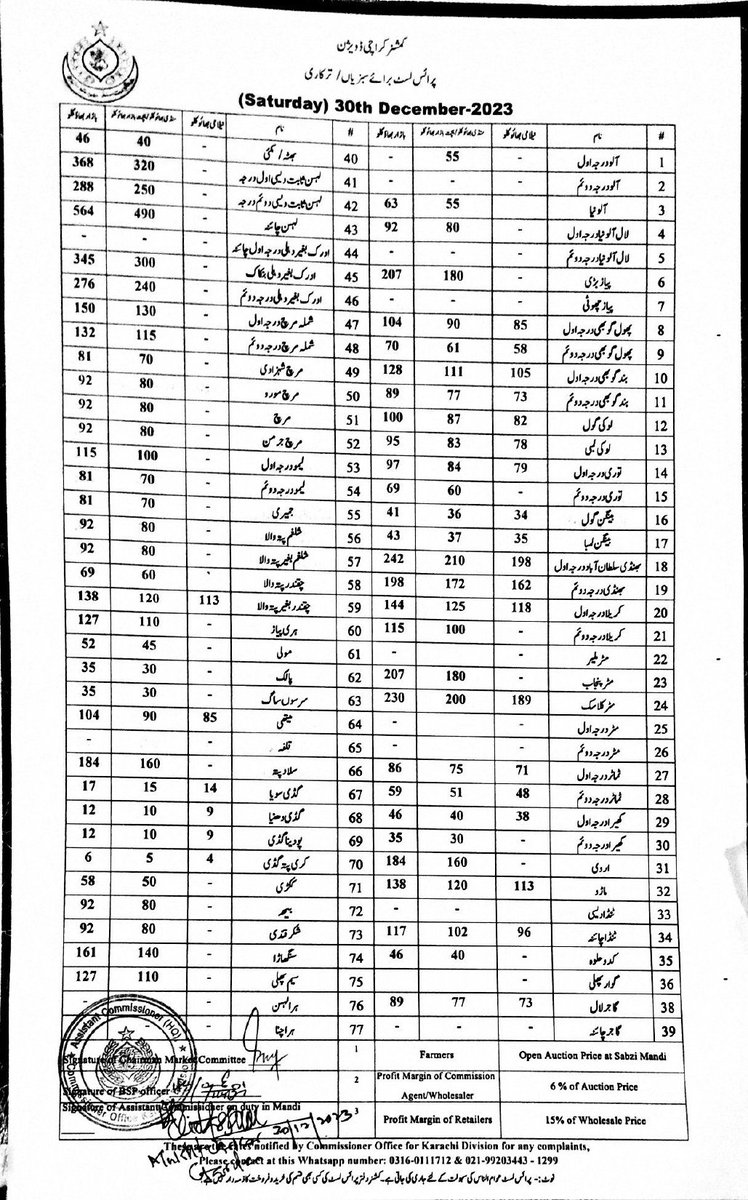 کمشنر کراچی ڈویژن
پرائس لسٹ برائے سبزیاں / ترکاری
(Saturday) 30th December-2023
# نام نیلامی بھاؤ کلو بازار بھاؤ کلو # نام نیلامی بھاؤ کلو بازار بھاؤ کلو
1 آلو درجہ اول - 55 - 40 بھٹہ / مکئی - 40 46
2 آلو درجہ دوئم - - - 41 لہسن ثابت دیسی اول درجہ - 320 368
3 آلو نیا - 55 63 42 لہسن ثابت دیسی دوئم درجہ - 250 288
4 لال آلو نیا درجہ اول - 80 92 43 لہسن چائنہ - 490 564
5 لال آلو نیا درجہ دوئم - - - 44 ادرک بغیر دہلی درجہ اول چائنہ - - -
6 پیاز بڑی - 180 207 45 ادرک بغیر دہلی بنکاک - 300 345
7 پیاز چھوٹی - - - 46 ادرک بغیر دہلی درجہ دوئم - 240 276
8 پھول گوبھی درجہ اول 85 90 104 47 شملہ مرچ درجہ اول - 130 150
9 پھول گوبھی درجہ دوئم 58 61 70 48 شملہ مرچ درجہ دوئم - 115 132
10 بند گوبھی درجہ اول 105 111 128 49 مرچ شہزادی - 70 81
11 بند گوبھی درجہ دوئم 73 77 89 50 مرچ مورو - 80 92
12 لوکی گول 82 87 100 51 مرچ - 80 92
13 لوکی لمبی 78 83 95 52 مرچ جرمن - 80 92
14 توری درجہ اول 79 84 97 53 لیمو درجہ اول - 100 115
15 توری درجہ دوئم - 60 69 54 لیمو درجہ دوئم - 70 81
16 بینگن گول 34 36 41 55 جمیری - 70 81
17 بینگن لمبا 35 37 43 56 شلغم پتہ والا - 80 92
18 بھنڈی سلطان آباد درجہ اول 198 210 242 57 شلغم بغیر پتہ والا - 80 92
19 بھنڈی درجہ دوئم 162 172 198 58 چقندر پتہ والا - 60 69
20 کریلا درجہ اول 118 125 144 59 چقندر بغیر پتہ والا 113 120 138
21 کریلا درجہ دوئم - 100 115 60 ہری پیاز - 110 127
22 مٹر ملیر - - - 61 مولی - 45 52
23 مٹر پنجاب - 180 207 62 پالک - 30 35
24 مٹر کلاسک 189 200 230 63 سرسوں ساگ - 30 35
25 مٹر درجہ اول - - - 64 میتھی 85 90 104
26 مٹر درجہ دوئم - - - 65 قلفہ - - -
27 ٹماٹر درجہ اول 71 75 86 66 سلاد پتہ - 160 184
28 ٹماٹر درجہ دوئم 48 51 59 67 گڈی سویا 14 15 17
29 کھیرا درجہ اول 38 40 46 68 گڈی دھنیا 9 10 12
30 کھیرا درجہ دوئم - 30 35 69 پودینا گڈی 9 10 12
31 اروی - 160 184 70 کری پتہ گڈی 4 5 6
32 ماڑو 113 120 138 71 ککڑی - 50 58
33 ٹنڈا دیسی - - - 72 بیھہ - 80 92
34 ٹنڈا چائنہ 96 102 117 73 شکر قندی - 80 92
35 کدو حلوہ - 40 46 74 سنگھاڑا - 140 161
36 گوار پھلی 75 سیم پھلی - 110 127
38 گاجر لال 73 77 89 76 ہرا لہسن - - -
39 گاجر چائنہ 77 ہرا چنا - - -
Signature of Chairman Market Committee 1 Farmers Open Auction Price at Sabzi Mandi
Signature of BSP officer 2 Profit Margin of Commission Agent/Wholesaler 6 % of Auction Price
Signature of Assistant Commissioner on duty in Mandi 3 Profit Margin of Retailers 15% of Wholesale Price
Assistant Commissioner (HQ)
The above rates notified by Commissioner Office for Karachi Division for any complaints,
Please contact at this Whatsapp number: 0316-0111712 & 021-99203443 - 1299
نوٹ:- پرائس لسٹ عوام الناس کی سہولت کے لئے جاری کی جاتی ہے۔ کمشنر آفس پرائس لسٹ کی کسی بھی قسم کی خرید و فروخت کا ذمہ دار نہیں ہے